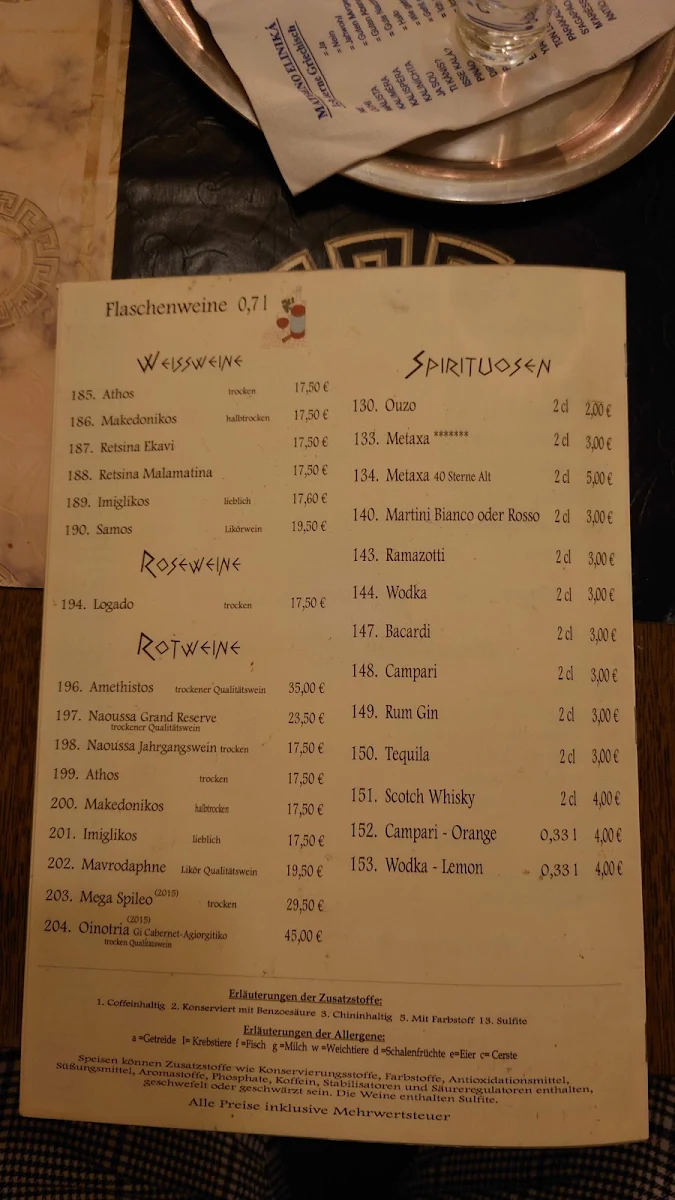 = Ja
= Nein
ELINIKÁ
Moderne Griechisch
KALIMERA
KALISPERA
KALINICHTA
JA SOU
TI KANIS?
Flaschenweine 0,7 l
WEISSWEINE
185. Athos trocken 17,50 €
186. Makedonikos halbtrocken 17,50 €
187. Retsina Ekavi 17,50 €
188. Retsina Malamatina 17,50 €
189. Imiglikos lieblich 17,60 €
190. Samos Likörwein 19,50 €
ROSEWEINE
194. Logado trocken 17,50 €
ROTWEINE
196. Amethistos trockener Qualitätswein 35,00 €
197. Naoussa Grand Reserve 23,50 €
trockener Qualitätswein
198. Naoussa Jahrgangswein trocken 17,50 €
199. Athos trocken 17,50 €
200. Makedonikos halbtrocken 17,50 €
201. Imiglikos lieblich 17,50 €
202. Mavrodaphne Likör Qualitätswein 19,50 €
203. Mega Spileo (2015) trocken 29,50 €
(2015)
204. Oinotria Gi Cabernet-Agiorgitiko 45,00 €
trocken Qualitätswein
SPIRITUOSEN
130. Ouzo 2 cl 2,00 €
133. Metaxa ******* 2 cl 3,00 €
134. Metaxa 40 Sterne Alt 2 cl 5,00 €
140. Martini Bianco oder Rosso 2 cl 3,00 €
143. Ramazotti 2 cl 3,00 €
144. Wodka 2 cl 3,00 €
147. Bacardi 2 cl 3,00 €
148. Campari 2 cl 3,00 €
149. Rum Gin 2 cl 3,00 €
150. Tequila 2 cl 3,00 €
151. Scotch Whisky 2 cl 4,00 €
152. Campari - Orange 0,33 l 4,00 €
153. Wodka - Lemon 0,33 l 4,00 €
Erläuterungen der Zusatzstoffe:
1. Coffeinhaltig 2. Konserviert mit Benzoesäure 3. Chininhaltig 5. Mit Farbstoff 13. Sulfite
Erläuterungen der Allergene:
a =Getreide l= Krebstiere f =Fisch g =Milch w =Weichtiere d =Schalenfrüchte e=Eier c= Gerste
Speisen können Zusatzstoffe wie Konservierungsstoffe, Farbstoffe, Antioxidationsmittel,
Süßungsmittel, Aromastoffe, Phosphate, Koffein, Stabilisatoren und Säureregulatoren enthalten,
geschwefelt oder geschwärzt sein. Die Weine enthalten Sulfite.
Alle Preise inklusive Mehrwertsteuer